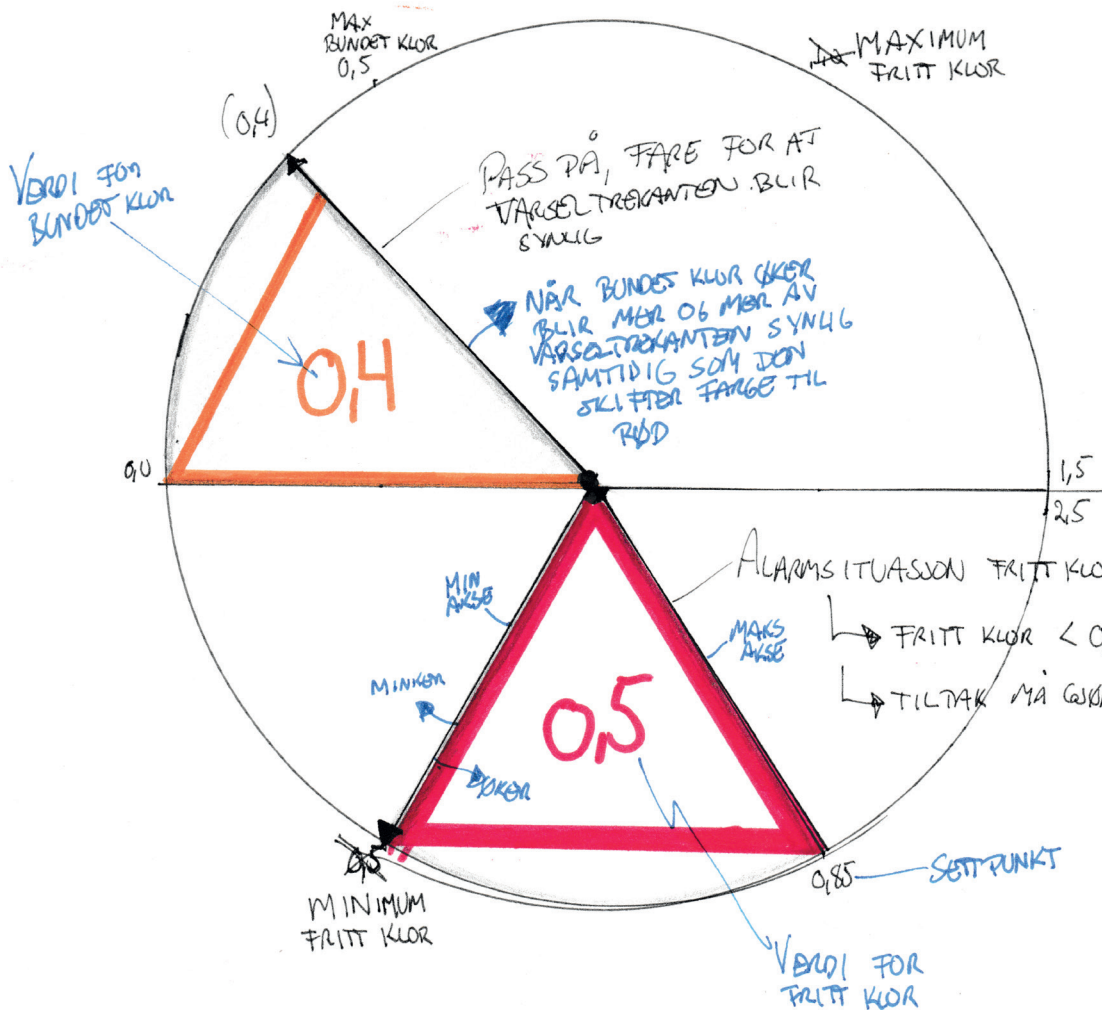 MAX
BUNDET KLOR
0,5
MAXIMUM
FRITT KLOR
(0,4)
VERDI FOR
BUNDET KLOR
PASS PÅ, FARE FOR AT
VARSELTREKANTEN BLIR
SYNLIG
NÅR BUNDET KLOR ØKER
BLIR MER OG MER AV
VARSELTREKANTEN SYNLIG
SAMTIDIG SOM DEN
SKIFTER FARGE TIL
RØD
0,4
0,0
1,5
2,5
ALARMSITUASJON FRITT KLO
FRITT KLOR < 0
TILTAK MÅ GJØR
MIN
AKSE
MAKS
AKSE
MINKER
ØKER
0,5
0,85
SETTPUNKT
MINIMUM
FRITT KLOR
VERDI FOR
FRITT KLOR